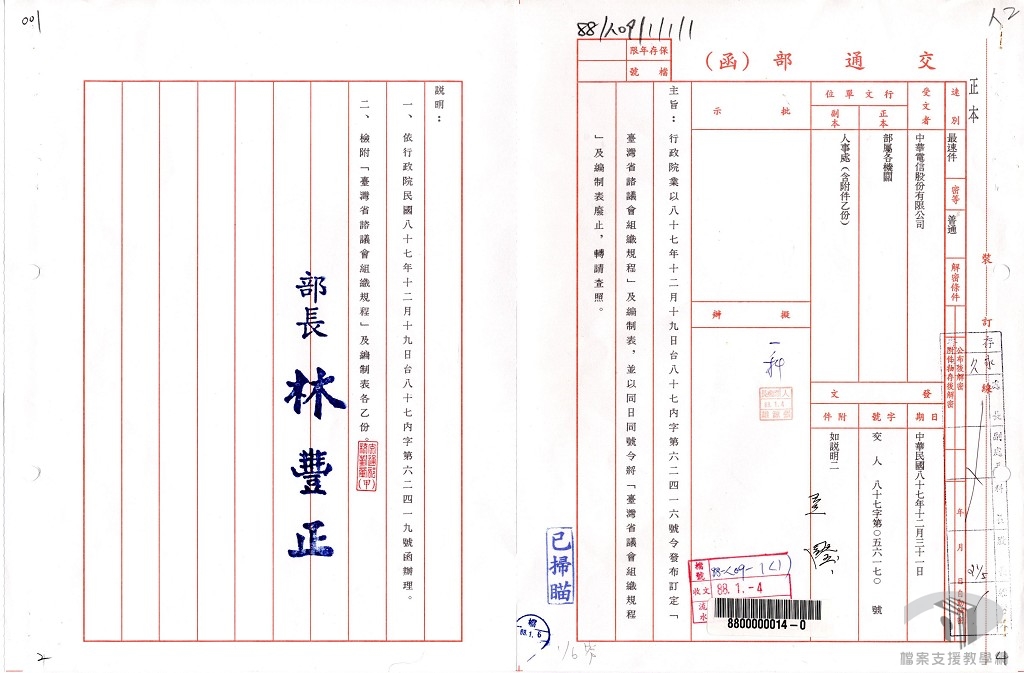 88/人09/1/1/1
保存年限
檔號
交通部（函）
正本
速別
最速件
密等
普通
解密條件
公布後解密
附件抽存後解密
年月日自動解密
受文者
中華電信股份有限公司
行文單位
正本
部屬各機關
副本
人事處（含附件乙份）
發文
日期
中華民國八十七年十二月三十一日
字號
交人八十七字第０五六一七０號
附件
如說明二
批示
擬辦
一科
裝
訂
線
主旨：行政院業以八十七年十二月十九日台八十七內字第六二四一六號令發布訂定「
臺灣省諮議會組織規程」及編制表，並以同日同號令將「臺灣省議會組織規程
」及編制表廢止，轉請查照。
檔號
88-人09-1(1)
收文
88.1.-4
流水
8800000014-0
已掃瞄
檔
88.1.6
4
001
說明：
一、依行政院民國八十七年十二月十九日台八十七內字第六二四一九號函辦理。
二、檢附「臺灣省諮議會組織規程」及編制表各乙份。
部長 林豐正
2
檔案支援教學網